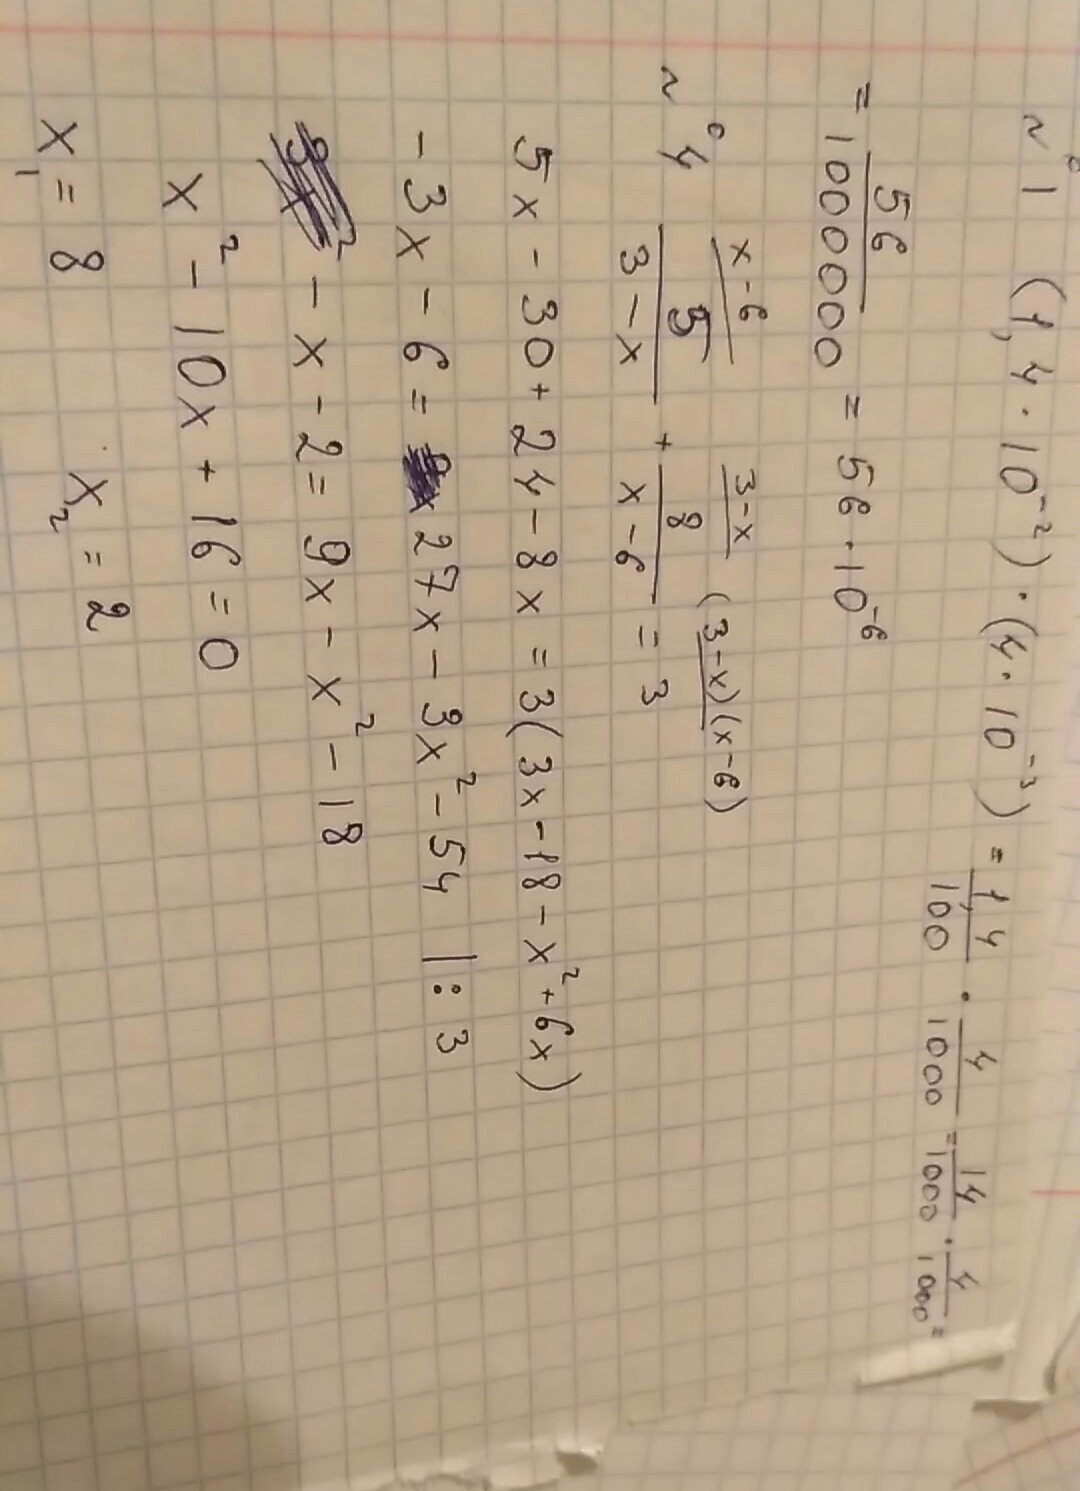 N°1 (1,4 · 10⁻²) · (4 · 10⁻³) = 1,4/100 · 4/1000 = 14/1000 · 4/1000 =
= 56/1000000 = 56 · 10⁻⁶
x-6 3-x (3-x)(x-6)
N°4 5/(3-x) + 8/(x-6) = 3
5x - 30 + 24 - 8x = 3(3x - 18 - x² + 6x)
-3x - 6 = 27x - 3x² - 54 |: 3
- x - 2 = 9x - x² - 18
x² - 10x + 16 = 0
x₁ = 8 x₂ = 2